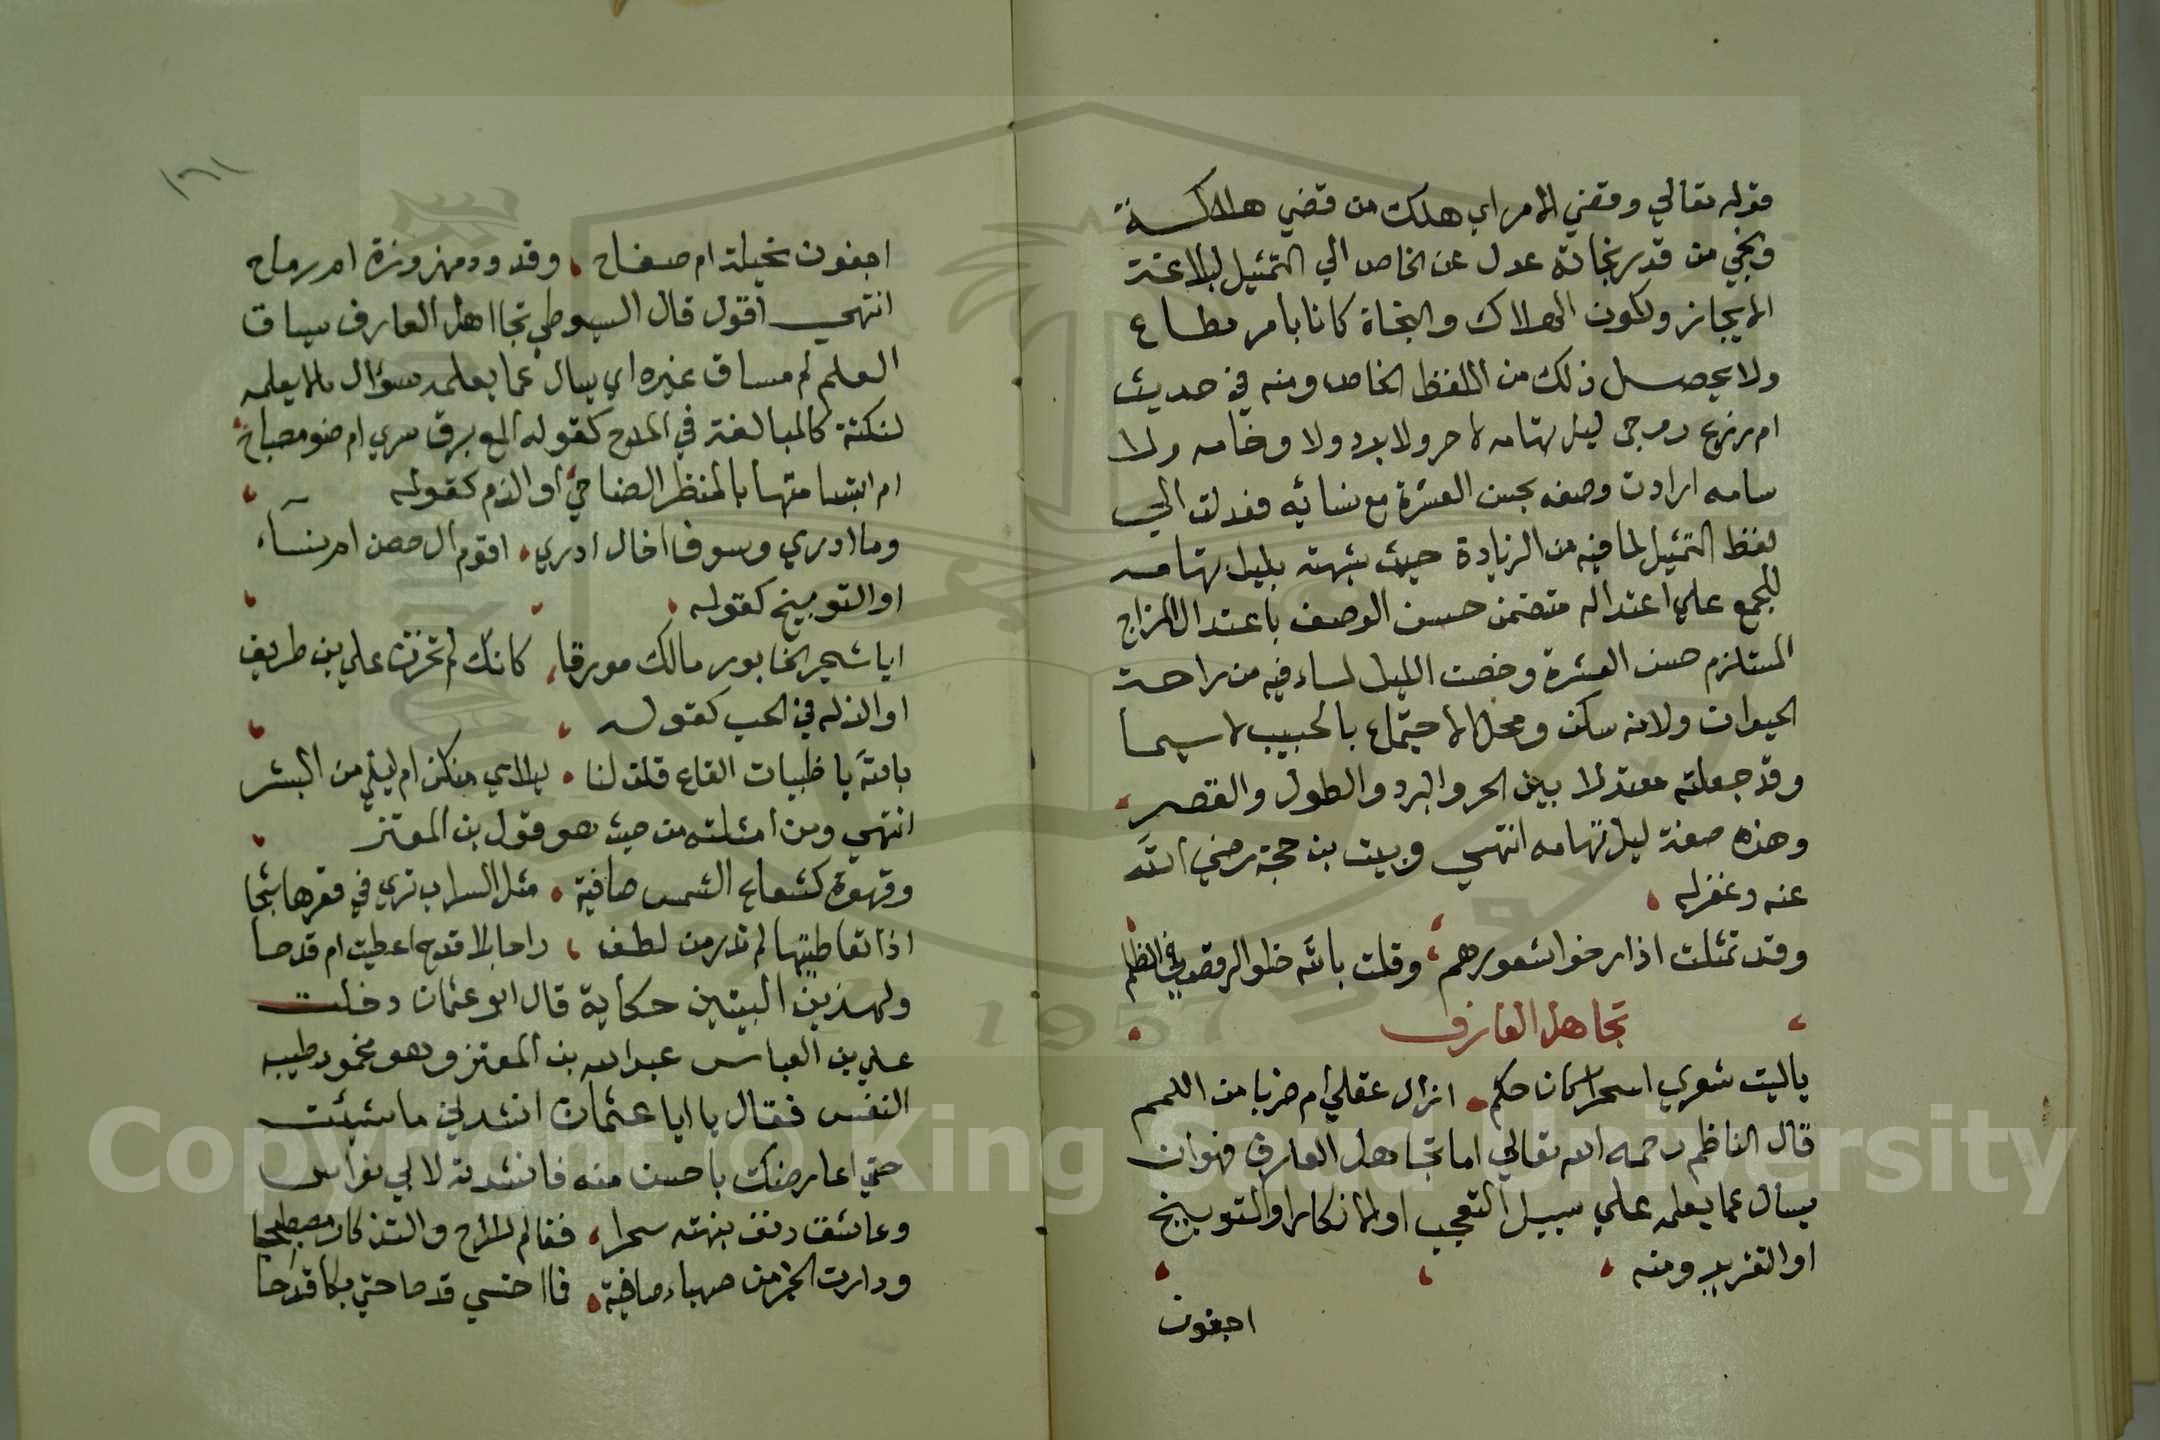 قوله تعالي وقضي الامر اي هلك من قضي هلاكه
ونجي من قدر نجاته عدل عن الخاص الي التمثيل لبلاغة
الايجاز ولكون الهلاك والنجاة كانا بامر مطاع
ولا يحصل ذلك من اللفظ الخاص ومنه في حديث
ام زرع زوجي ليل تهامه لا حر ولا برد ولا وخامه ولا
سامه ارادت وصفه بحسن العشرة مع نسائه فعدلت الي
لفظ التمثيل لما فيه من الزيادة حيث شبهته بليل تهامه
المجمع علي اعتداله متضمن حسن الوصف باعتدال المزاج
المستلزم حسن العشرة وخصت الليل لما فيه من راحة
الحيوان ولانه سكن ومحل الاجتماع بالحبيب لا سيما
وقد جعلته معتدلا بين الحر والبرد والطول والقصر
وهذه صفة ليل تهامه انتهي وبيت بن حجة رضي الله
عنه وغفر له
وقد تمثلت اذ ارخوا شعورهم وقلت بالله خلوا الرقص في الظلم
تجاهل العارف
ياليت شعري اسحرا كان حكم ازال عقلي ام ضربا من اللمم
قال الناظم رحمه الله تعالي اما تجاهل العارف فهو ان
يسال عما يعلمه علي سبيل التعجب او الانكار او التوبيخ
او التقرير ومنه
اجفون
١٦١
اجفون نحيلة ام صفاح وقدود مهزوزة ام رماح
انتهي اقول قال السيوطي تجااهل العارف سياق
العلم لم مساق غيره اي يسال عما يعلمه سؤال مالا يعلمه
لنكتة كالمبالغة في المدح كقوله المع برق سري ام ضو مصباح
ام ابتسامتها بالمنظر الضاحي او الذم كقوله
وما ادري وسوف اخال ادري اقوم ال حصن ام نساء
او التوبيخ كقوله
ايا شجر الخابور مالك مورقا كانك لم تحزن علي بن طريف
او الذله في الحب كقوله
بالله يا ظبيات القاع قلن لنا ليلاي منكن ام ليلي من البشر
انتهي ومن امثلته من حيث هو قول بن المعتز
وقهوة كشعاع الشمس صافية مثل السراب تري في قعرها شجا
اذا تعاطيتها لم تدر من لطف راحا بلا قدح اعطيت ام قدحا
ولهذين البيتين حكاية قال ابو عثمان دخلت
علي بن العباس عبد الله بن المعتز وهو مخمور طيب
النفس فقال يا ابا عثمان انشدني ما شيئت
حتي اعارضك باحسن منه فانشدته لابي نواس
وعاشق دنف نبهته سحرا فقام للراح والتذكار مصطبحا
ودارت الخمر من صهباء صافية فما احتسي قدحا حتي بكا قدحا